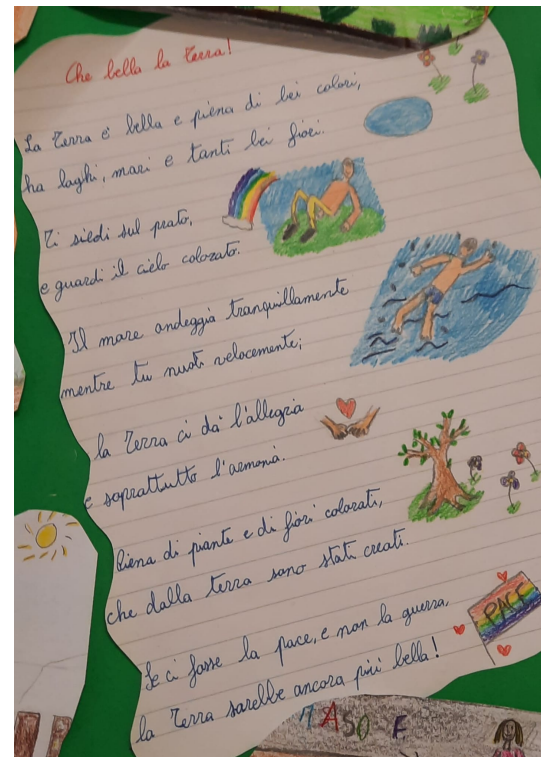 Che bella la Terra!
La Terra è bella e piena di bei colori,
ha laghi, mari e tanti bei fiori.
Ti siedi sul prato,
e guardi il cielo colorato.
Il mare ondeggia tranquillamente
mentre tu nuoti velocemente;
la Terra ci dà l'allegria
e soprattutto l'armonia.
Piena di piante e di fiori colorati,
che dalla terra sono stati creati.
Se ci fosse la pace, e non la guerra,
la Terra sarebbe ancora più bella!
PACE